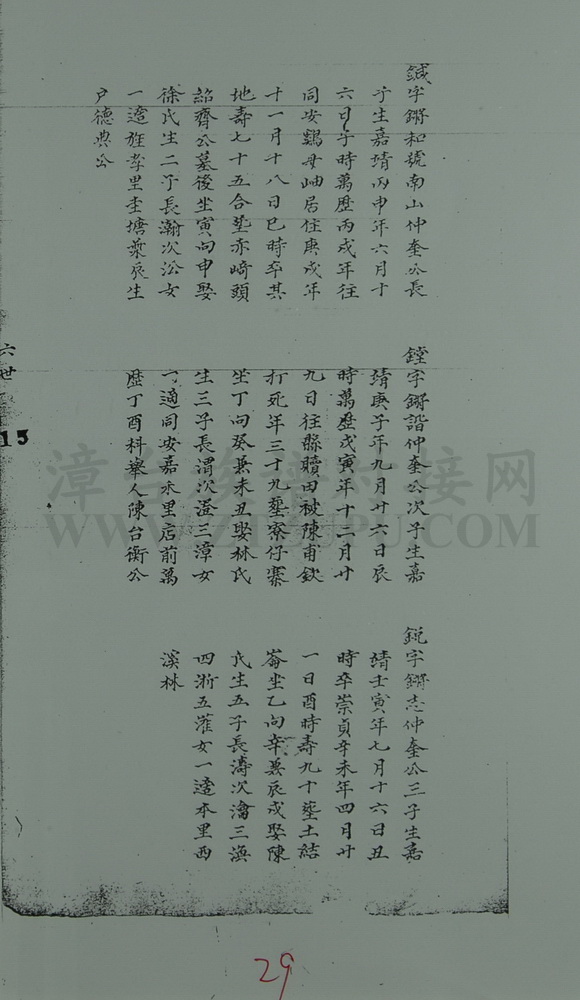 鋮字鏘和號南山仲奎公長
子生嘉靖丙申年六月十
六日午時萬歷丙戌年往
同安鷄母岫居住庚戌年
十一月十八日巳時卒其
地壽七十五合塟亦崎頭
紹齊公墓後坐寅向申娶
徐氏生二子長瀚次汾女
一適旌孝里李塘葉辰生
戶德典公
鏜字鏘諧仲奎公次子生嘉
靖庚子年九月廿六日辰
時萬歷戊寅年十二月廿
九日往縣贖田被陳甫欽
打死年三十九塟寮仔寨
坐丁向癸兼未丑娶林氏
生三子長渭次滋三漳女
一適同安嘉禾里店前萬
歷丁酉科舉人陳台衡公
銳字鏘志仲奎公三子生嘉
靖壬寅年七月十六日丑
時卒崇貞辛未年四月廿
一日酉時壽九十塟土結
崙坐乙向辛兼辰戌娶陳
氏生五子長濤次瀹三漁
四浙五灌女一適本里西
溪林
六世
15
漳台族譜对接网
WWW.ZTZUPU.COM
29